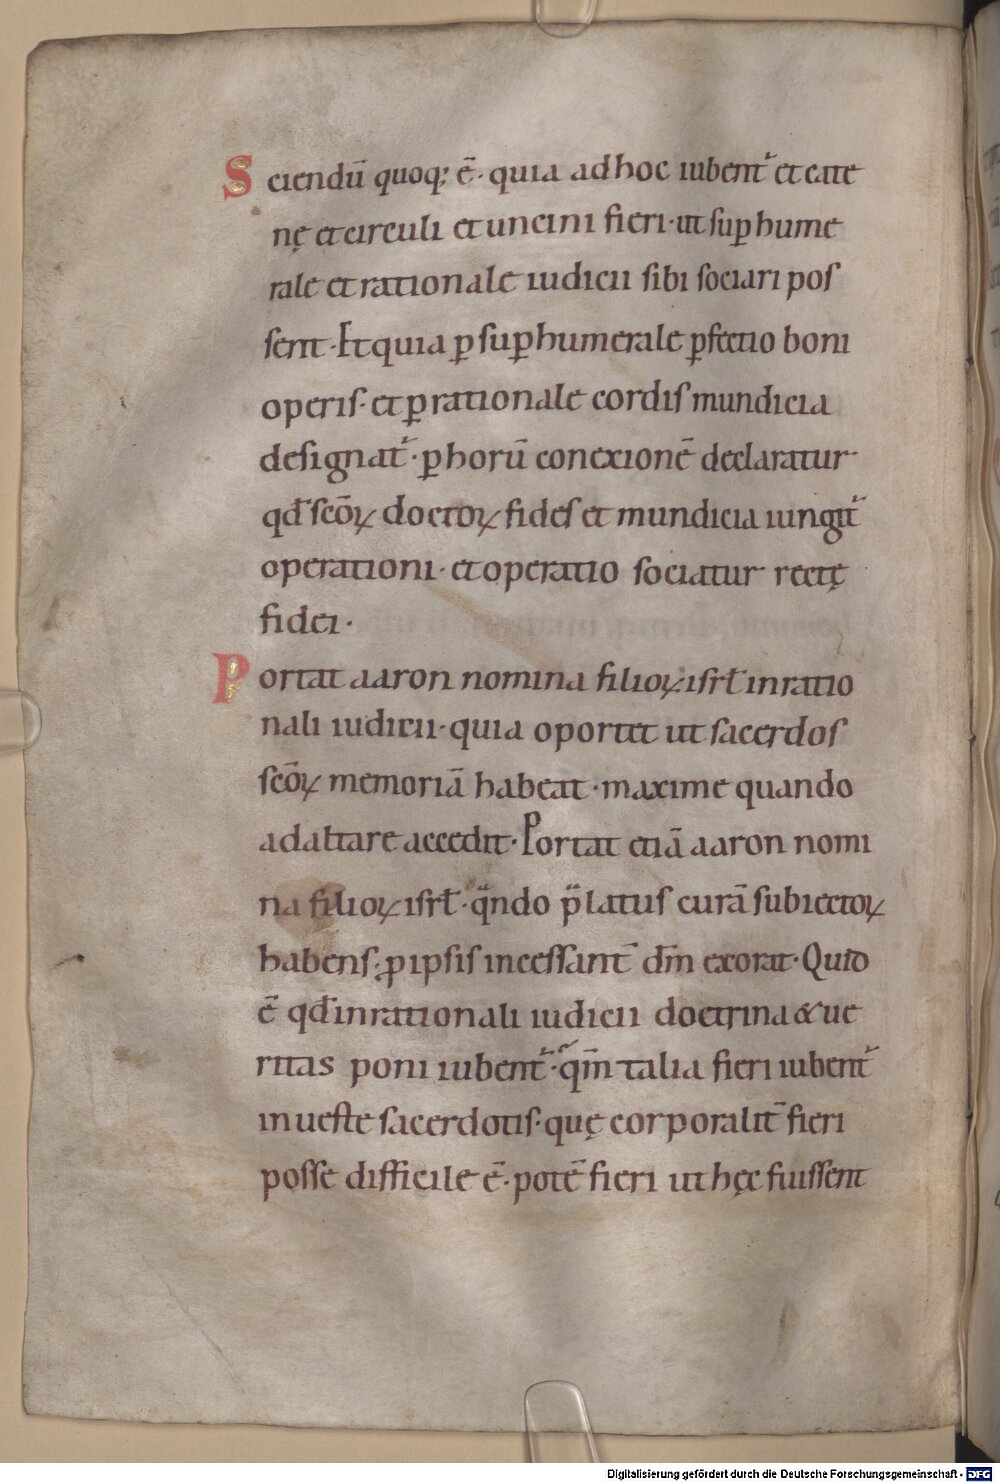 Sciendū quoq; ē· quia adhoc iubent᷑ et cate
nę et circuli et uncini fieri· ut suꝑhume
rale et rationale iudicii sibi sociari pos
sent· Et quia ꝑ suꝑhumerale ꝑfectio boni
operis· et ꝑ rationale cordis mundicia
designat᷑· ꝑ horū conexionē declaratur
qđ scōꝝ doctoꝝ fides et mundicia iungit᷑
operationi· et operatio sociatur rectę
fidei·
Portat aaron nomina filioꝝ isrł in ratio
nali iudicii· quia oportet ut sacerdos
scōꝝ memoriā habeat· maxime quando
ad altare accedit· Portat etiā aaron nomi
na filioꝝ isrł· qͣndo p̄latus curā subiectoꝝ
habens· ꝓ ipsis incessant̄ dm̄ exorat· Quid
ē qđ in rationali iudicii doctrina & ue
ritas poni iubent᷑· qm̄ talia fieri iubent᷑
in ueste sacerdotis· quę corporalit̄ fieri
posse difficile ē· potē fieri ut hęc fuissent
Digitalisierung gefördert durch die Deutsche Forschungsgemeinschaft - DFG